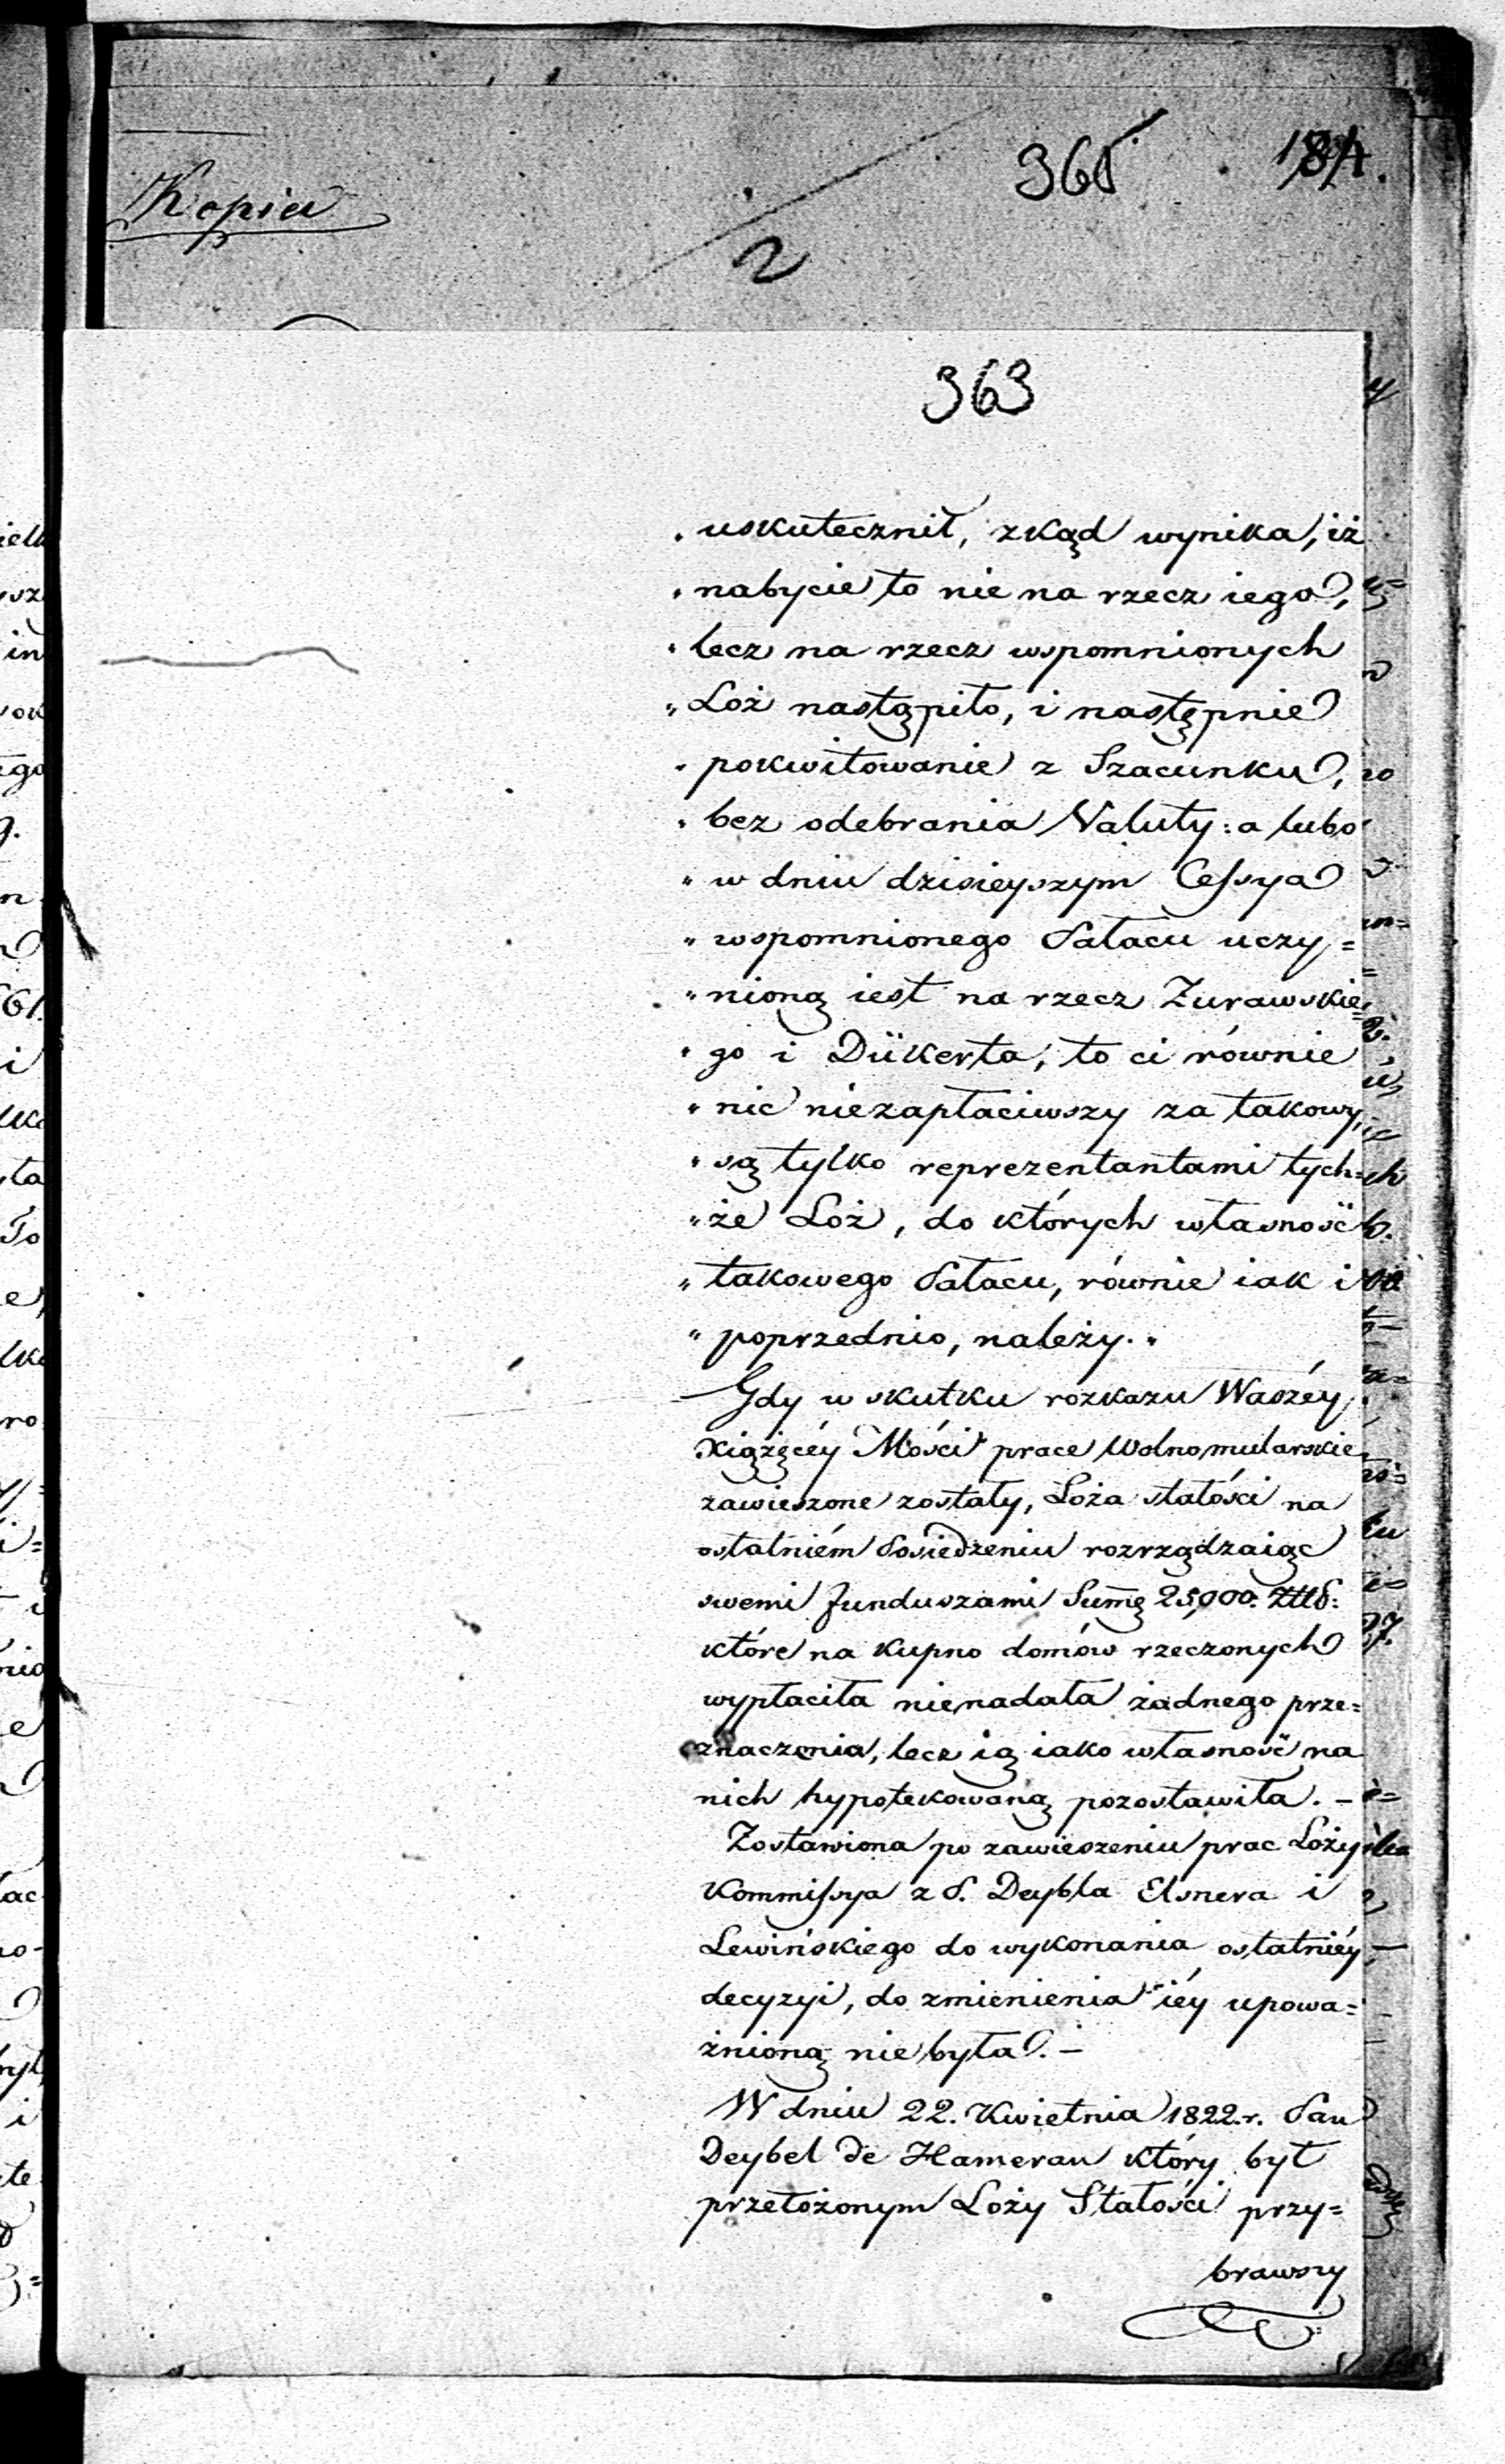 Kopia
365
184.
2
363
„uskutecznił, zkąd wynika, iż
„nabycie to nie na rzecz iego,
„lecz na rzecz wspomnionych
„Loż nastąpiło, i następnie
„pokwitowanie z Szacunku,
„bez odebrania Waluty: a lubo
„w dniu dzisieyszym Cessya
„wspomnionego Pałacu uczy=
„nioną iest na rzecz Zurawskie=
„go i Dükerta, to ci równie
„nic niezapłaciwszy za takowy,
„są tylko reprezentantami tych=
„że Loż, do których własność
„takowego Pałacu, równie iak i
„poprzednio, należy.„
Gdy w skutku rozkazu Waszéy
Xiążęcéy Mości prace Wolnomularskie
zawieszone zostały, Loża stałości na
ostatniém Posiedzeniu rozrządzaiąc
swemi funduszami Sum̄ę 25,000. Złł.
które na kupno domów rzeczonych
wypłaciła nienadała żadnego prze=
znaczenia, lecz ią iako własność na
nich hypotekowaną pozostawiła. –
Zostawiona po zawieszeniu prac Loży
Kommissya z P. Deybla Elsnera i
Lewińskiego do wykonania ostatniéy
decyzyi, do zmienienia iéy upowa=
żnioną nie była. –
W dniu 22. Kwietnia 1822. r. Pan
Deybel de Hamerau który był
przełożonym Loży Stałości przy=
brawszy